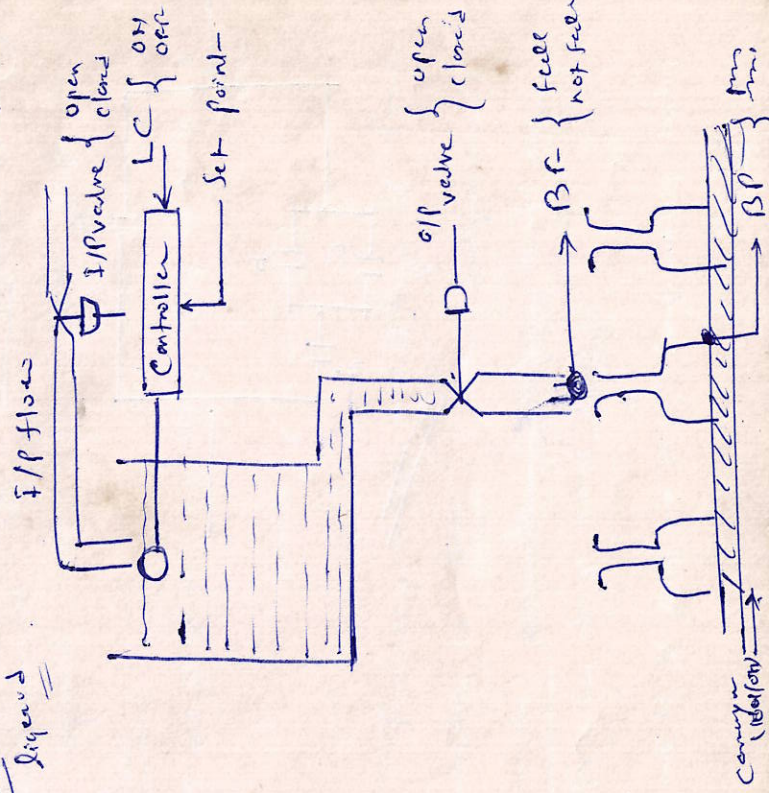 liquid
I/P flow
I/P valve { open
closed
Controller
LC { ON
OFF
Set point
O/P valve { open
closed
BF { full
not full
BP {
Conveyor